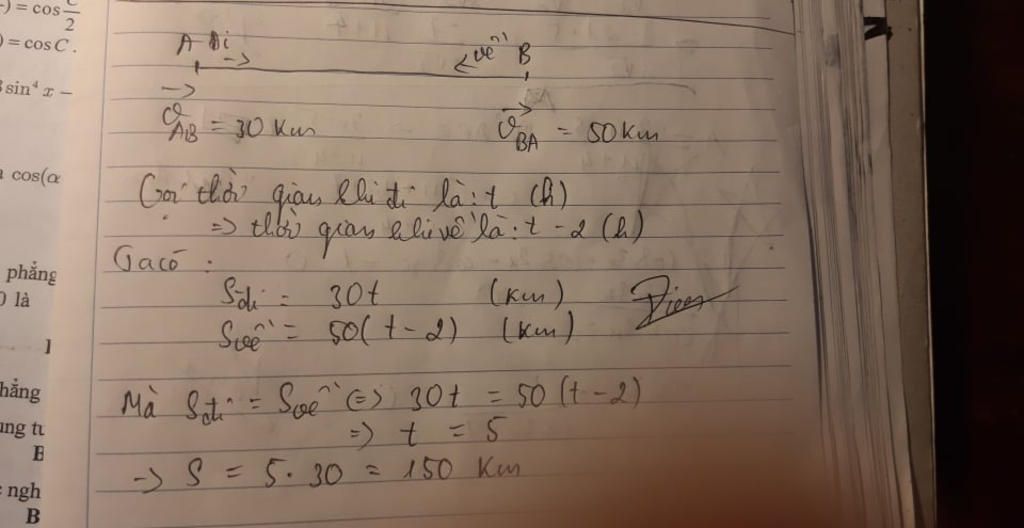 ) = cos C/2
) = cos C.
sin⁴ x −
cos(α
phẳng
là
hẳng
ung tu
B
ngh
B
A Đi về B
v⃗AB = 30 Km v⃗BA = 50 Km
Gọi thời gian khi đi là: t (h)
=> thời gian khi về là: t - 2 (h)
Ta có :
Sđi = 30t (km)
Svề = 50(t - 2) (km)
Mà Sđi = Svề <=> 30t = 50(t - 2)
=> t = 5
-> S = 5 · 30 = 150 Km